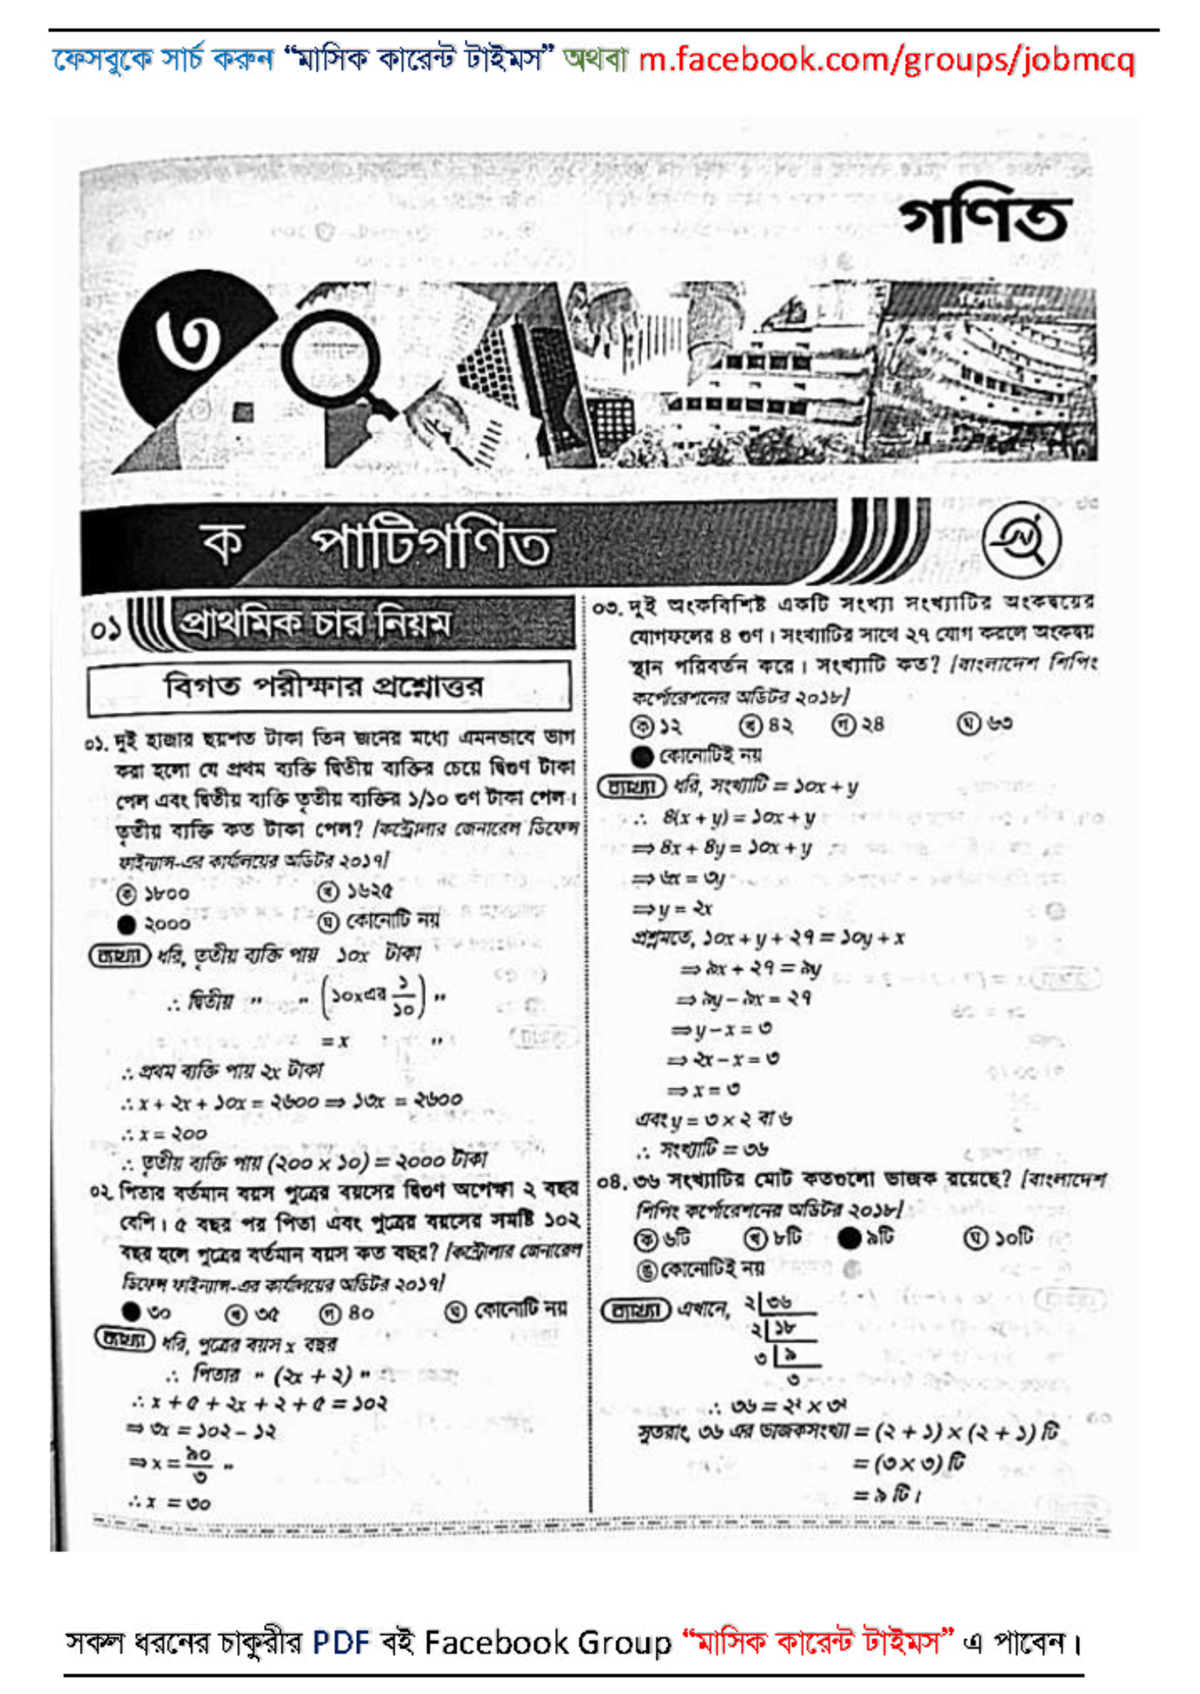 ফেসবুকে সার্চ করুন “মাসিক কারেন্ট টাইমস” অথবা m.facebook.com/groups/jobmcq
গণিত
৩
ক পাটিগণিত
০১ প্রাথমিক চার নিয়ম
বিগত পরীক্ষার প্রশ্নোত্তর
০১. দুই হাজার ছয়শত টাকা তিন জনের মধ্যে এমনভাবে ভাগ
করা হলো যে প্রথম ব্যক্তি দ্বিতীয় ব্যক্তির চেয়ে দ্বিগুণ টাকা
পেল এবং দ্বিতীয় ব্যক্তি তৃতীয় ব্যক্তির ১/১০ গুণ টাকা পেল।
তৃতীয় ব্যক্তি কত টাকা পেল? [কন্ট্রোলার জেনারেল ডিফেন্স
ফাইন্যান্স-এর কার্যালয়ের অডিটর ২০১৭]
ক ১৮০০ খ ১৬২৫
২০০০ ঘ কোনোটি নয়
ব্যাখ্যা ধরি, তৃতীয় ব্যক্তি পায় ১০x টাকা
∴ দ্বিতীয় " " (১০x এর ১/১০) "
= x "
∴ প্রথম ব্যক্তি পায় ২x টাকা
∴ x + ২x + ১০x = ২৬০০ ⇒ ১৩x = ২৬০০
∴ x = ২০০
∴ তৃতীয় ব্যক্তি পায় (২০০ × ১০) = ২০০০ টাকা
০২. পিতার বর্তমান বয়স পুত্রের বয়সের দ্বিগুণ অপেক্ষা ২ বছর
বেশি। ৫ বছর পর পিতা এবং পুত্রের বয়সের সমষ্টি ১০২
বছর হলে পুত্রের বর্তমান বয়স কত বছর? [কন্ট্রোলার জেনারেল
ডিফেন্স ফাইন্যান্স-এর কার্যালয়ের অডিটর ২০১৭]
৩০ খ ৩৫ গ ৪০ ঘ কোনোটি নয়
ব্যাখ্যা ধরি, পুত্রের বয়স x বছর
∴ পিতার " (২x + ২) "
∴ x + ৫ + ২x + ২ + ৫ = ১০২
⇒ ৩x = ১০২ – ১২
⇒ x = ৯০/৩ "
∴ x = ৩০
০৩. দুই অংকবিশিষ্ট একটি সংখ্যা সংখ্যাটির অংকদ্বয়ের
যোগফলের ৪ গুণ। সংখ্যাটির সাথে ২৭ যোগ করলে অংকদ্বয়
স্থান পরিবর্তন করে। সংখ্যাটি কত? [বাংলাদেশ শিপিং
কর্পোরেশনের অডিটর ২০১৮]
ক ১২ খ ৪২ গ ২৪ ঘ ৬৩
কোনোটিই নয়
ব্যাখ্যা ধরি, সংখ্যাটি = ১০x + y
∴ ৪(x + y) = ১০x + y
⇒ ৪x + ৪y = ১০x + y
⇒ ৬x = ৩y
⇒ y = ২x
প্রশ্নমতে, ১০x + y + ২৭ = ১০y + x
⇒ ৯x + ২৭ = ৯y
⇒ ৯y – ৯x = ২৭
⇒ y – x = ৩
⇒ ২x – x = ৩
⇒ x = ৩
এবং y = ৩ × ২ বা ৬
∴ সংখ্যাটি = ৩৬
০৪. ৩৬ সংখ্যাটির মোট কতগুলো ভাজক রয়েছে? [বাংলাদেশ
শিপিং কর্পোরেশনের অডিটর ২০১৮]
ক ৬টি খ ৮টি ৯টি ঘ ১০টি
ঙ কোনোটিই নয়
ব্যাখ্যা এখানে, ২ ৩৬
২ ১৮
৩ ৯
৩
∴ ৩৬ = ২² × ৩²
সুতরাং, ৩৬ এর ভাজকসংখ্যা = (২ + ১) × (২ + ১) টি
= (৩ × ৩) টি
= ৯ টি।
সকল ধরনের চাকুরীর PDF বই Facebook Group “মাসিক কারেন্ট টাইমস” এ পাবেন।